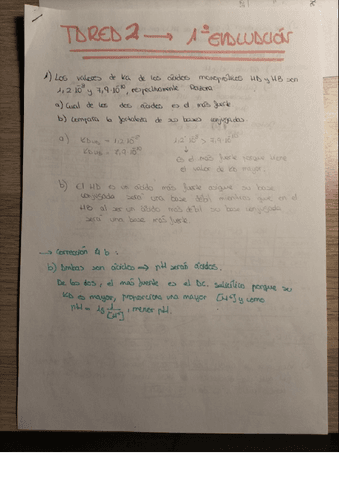 TARED 2 → 1ª EVALUACIÓN
1) Los valores de Ka de los ácidos monopróticos HA y HB son
1,2·10 y 7,9·10, respectivamente. Razona:
a) Cuál de los dos ácidos es el más fuerte
b) Compara la fortaleza de sus bases conjugadas.
a)
es el más fuerte porque tiene
el valor de Ka mayor.
b) El HA es un ácido más fuerte asique su base
conjugada será una base débil mientras que en el
HB al ser un ácido más débil su base conjugada
será una base más fuerte.
→ Corrección 4 b:
b) Ambas son ácidos ⟹ pH serán ácidos.
De los dos, el más fuerte es el Ác. salicílico porque su
Ka es mayor, proporciona una mayor [H⁺] y como
pH = lg 1/[H⁺], menor pH.